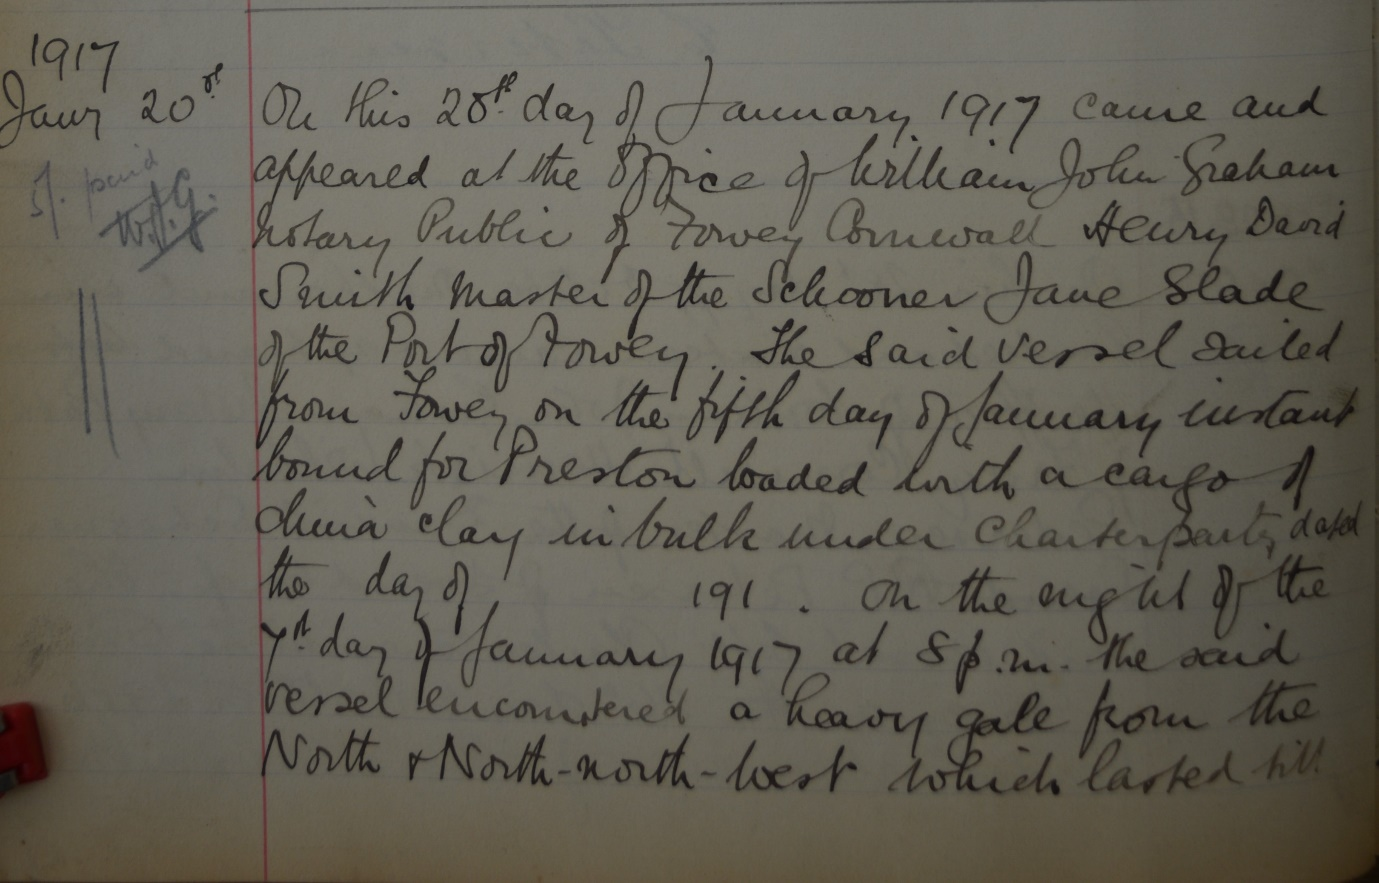 1917
Jany 20th
5/- paid
W.J.G.
On this 20th day of January 1917 came and
appeared at the Office of William John Graham
Notary Public of Fowey Cornwall Henry David
Smith Master of the Schooner Jane Slade
of the Port of Fowey. The said Vessel sailed
from Fowey on the fifth day of January instant
bound for Preston loaded with a cargo of
china clay in bulk under Charterparty dated
the day of 191 . On the night of the
7th day of January 1917 at 8 p.m. the said
vessel encountered a heavy gale from the
North & North-north-west which lasted till